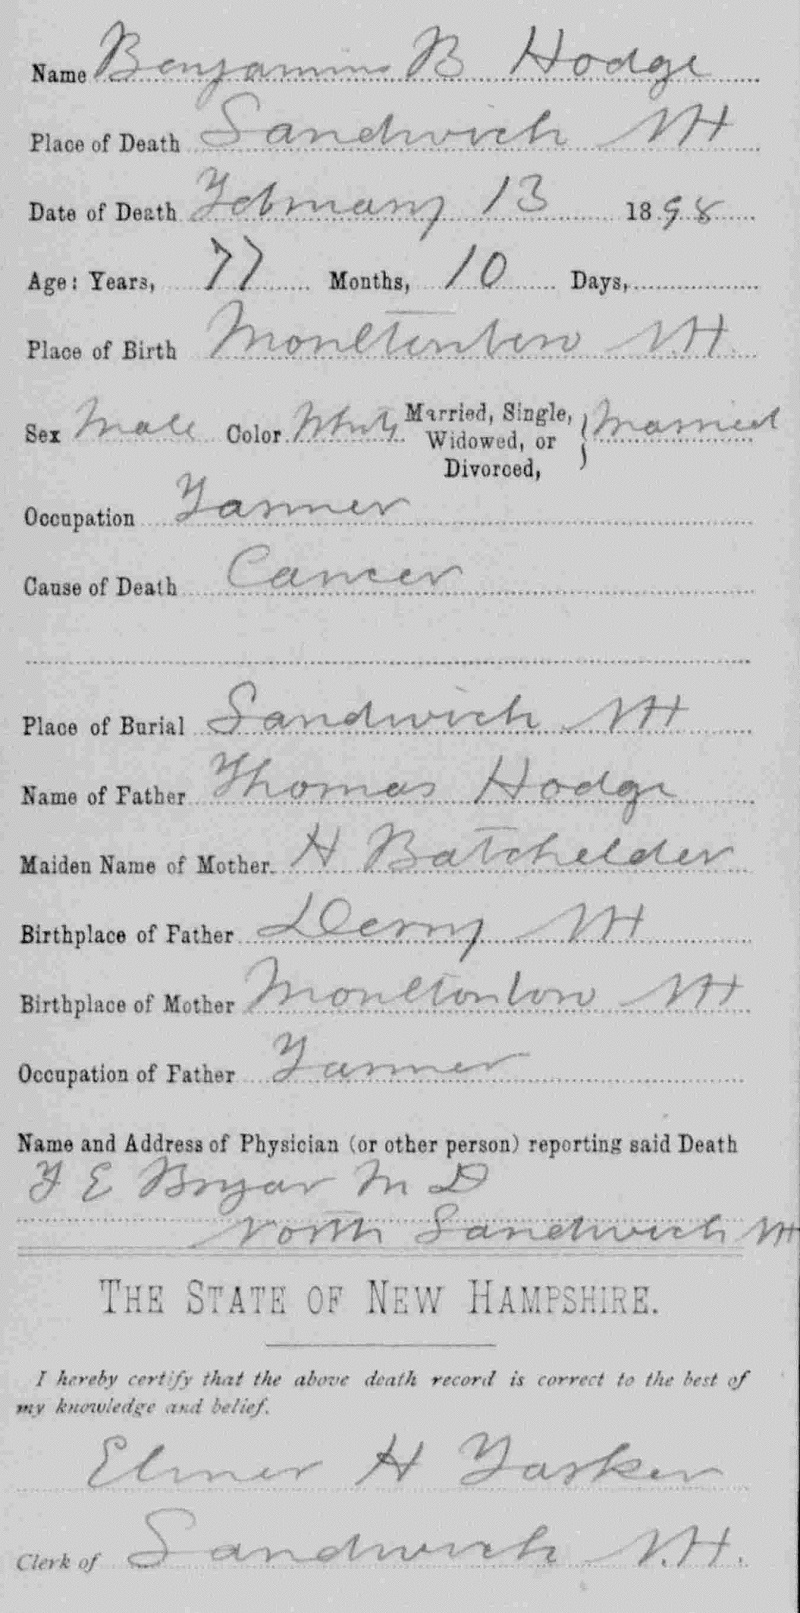 Name Benjamin B Hodge
Place of Death Sandwich NH
Date of Death February 13 1898
Age: Years, 77 Months, 10 Days,
Place of Birth Moultonboro NH
Sex Male Color White Married, Single, Widowed, or Divorced, } Married
Occupation Farmer
Cause of Death Cancer
Place of Burial Sandwich NH
Name of Father Thomas Hodge
Maiden Name of Mother. H Batchelder
Birthplace of Father Derry NH
Birthplace of Mother Moultonboro NH
Occupation of Father Farmer
Name and Address of Physician (or other person) reporting said Death
F E Bryar M D
North Sandwich NH
THE STATE OF NEW HAMPSHIRE.
I hereby certify that the above death record is correct to the best of
my knowledge and belief.
Elmer H
Clerk of Sandwich N.H.